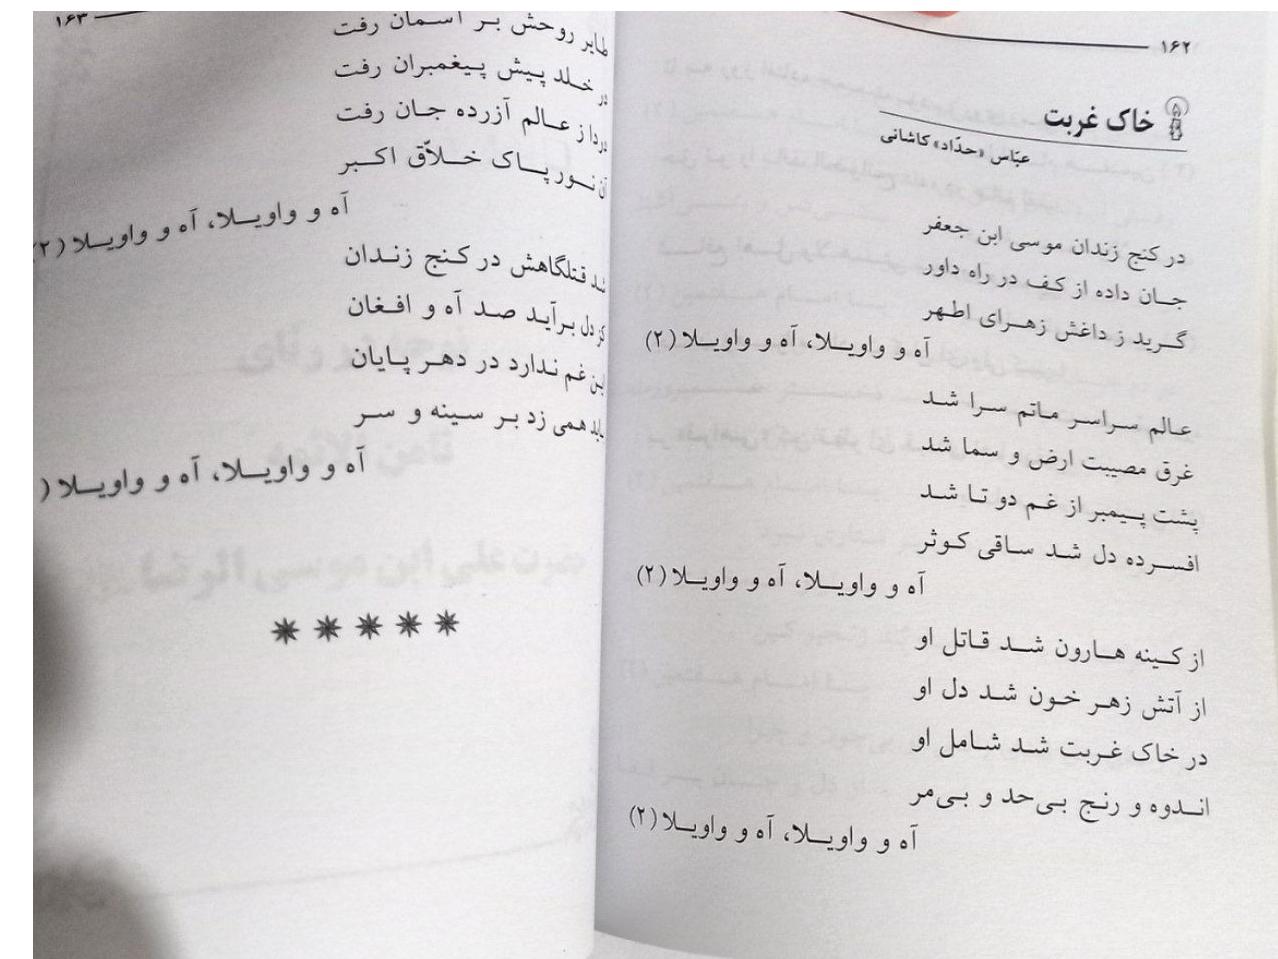 ۱۶۲
خاک غربت
عبّاس «حدّاد» کاشانی
در کنج زندان موسی ابن جعفر
جان داده از کف در راه داور
گرید ز داغش زهرای اطهر
آه و واویلا، آه و واویلا (۲)
عالم سراسر ماتم سرا شد
غرق مصیبت ارض و سما شد
پشت پیمبر از غم دو تا شد
افسرده دل شد ساقی کوثر
آه و واویلا، آه و واویلا (۲)
از کینه هارون شد قاتل او
از آتش زهر خون شد دل او
در خاک غربت شد شامل او
اندوه و رنج بی‌حد و بی‌مر
آه و واویلا، آه و واویلا (۲)
۱۶۳
طایر روحش بر آسمان رفت
در خلد پیش پیغمبران رفت
دردا ز عالم آزرده جان رفت
آن نور پاک خلاّق اکبر
آه و واویلا، آه و واویلا (۲)
شد قتلگاهش در کنج زندان
کز دل برآید صد آه و افغان
این غم ندارد در دهر پایان
باید همی زد بر سینه و سر
آه و واویلا، آه و واویلا (